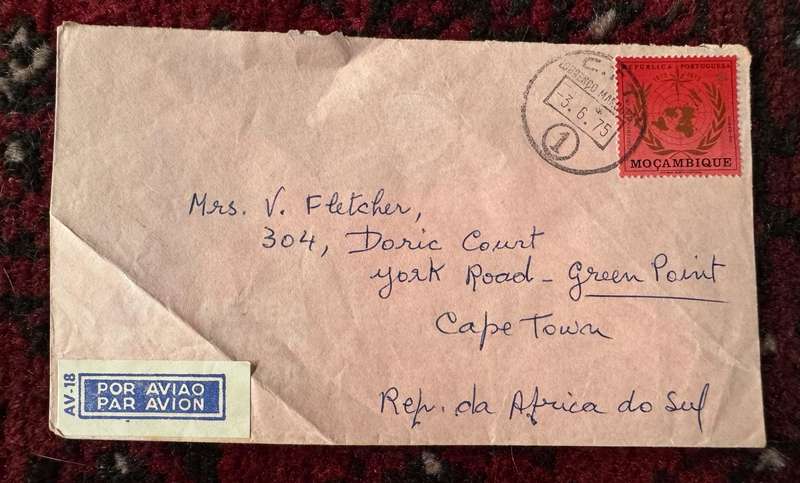 REPUBLICA PORTUGUESA
MOÇAMBIQUE
C.
LOURENÇO MAR
-3.6.75
1
Mrs. V. Fletcher,
304, Doric Court
York Road - Green Point
Cape Town
Rep. da Africa do Sul
AV-18
POR AVIAO
PAR AVION